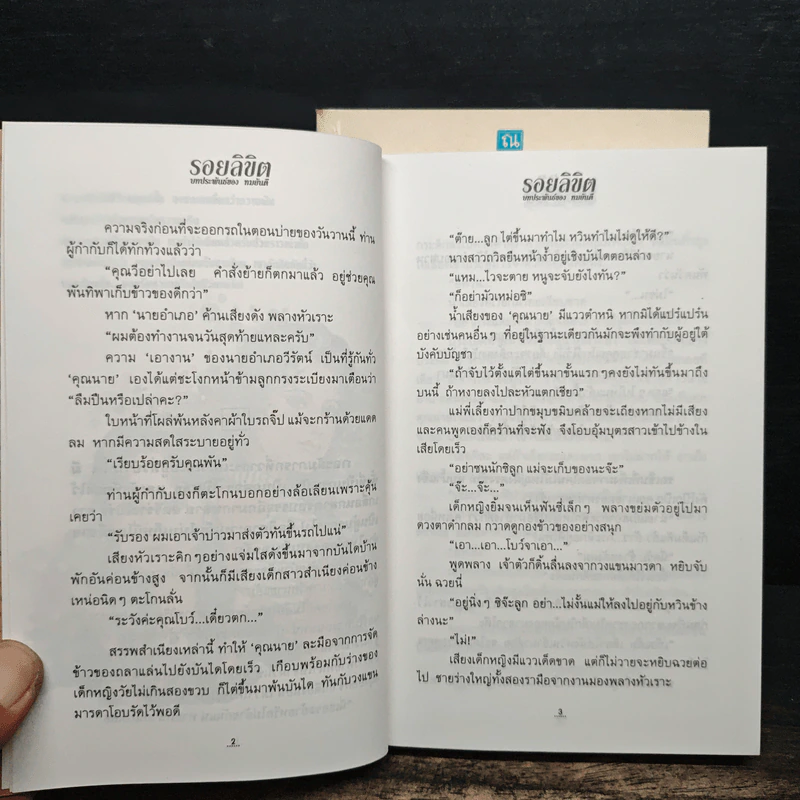 ณ
รอยลิขิต
บทประพันธ์ของ ทมยันตี
ความจริงก่อนที่จะออกรถในตอนบ่ายของวันวานนี้ ท่าน
ผู้กำกับก็ได้ทักท้วงแล้วว่า
“คุณวีอย่าไปเลย คำสั่งย้ายก็ตกมาแล้ว อยู่ช่วยคุณ
พันทิพาเก็บข้าวของดีกว่า”
หาก ‘นายอำเภอ’ ค้านเสียงดัง พลางหัวเราะ
“ผมต้องทำงานจนวันสุดท้ายแหละครับ”
ความ ‘เอางาน’ ของนายอำเภอวีรัตน์ เป็นที่รู้กันทั่ว
‘คุณนาย’ เองได้แต่ชะโงกหน้าข้ามลูกกรงระเบียงมาเตือนว่า
“ลืมปืนหรือเปล่าคะ?”
ใบหน้าที่โผล่พ้นหลังคาผ้าใบรถจี๊ป แม้จะกร้านด้วยแดด
ลม หากมีความสดใสระบายอยู่ทั่ว
“เรียบร้อยครับคุณพัน”
ท่านผู้กำกับเองก็ตะโกนบอกอย่างล้อเลียนเพราะคุ้น
เคยว่า
“รับรอง ผมเอาเจ้าบ่าวมาส่งตัวทันขึ้นรถไปแน่”
เสียงหัวเราะคิกๆ อย่างแจ่มใสดังขึ้นมาจากบันไดบ้าน
พักอันค่อนข้างสูง จากนั้นก็มีเสียงเด็กสาวสำเนียงค่อนข้าง
เหน่อนิดๆ ตะโกนลั่น
“ระวังค่ะคุณโบว์...เดี๋ยวตก...”
สรรพสำเนียงเหล่านี้ ทำให้ ‘คุณนาย’ ละมือจากการจัด
ข้าวของถลาแล่นไปยังบันไดโดยเร็ว เกือบพร้อมกับร่างของ
เด็กหญิงวัยไม่เกินสองขวบ ก็ไต่ขึ้นมาพ้นบันได ทันกับวงแขน
มารดาโอบรัดไว้พอดี
2
รอยลิขิต
บทประพันธ์ของ ทมยันตี
“ต๊าย...ลูก ไต่ขึ้นมาทำไม หวินทำไมไม่ดูให้ดี?”
นางสาวถวิลยืนหน้าง้ำอยู่เชิงบันไดตอนล่าง
“แหม...ไวจะตาย หนูจะจับยังไงทัน?”
“ก็อย่ามัวเหม่อซิ”
น้ำเสียงของ ‘คุณนาย’ มีแววตำหนิ หากมิได้แปร๋แปร้น
อย่างเช่นคนอื่นๆ ที่อยู่ในฐานะเดียวกันมักจะพึงทำกับผู้อยู่ใต้
บังคับบัญชา
“ถ้าจับไว้ตั้งแต่ไต่ขึ้นมาขั้นแรกๆ คงยังไม่ทันขึ้นมาถึง
บนนี้ ถ้าหงายลงไปละหัวแตกเชียว”
แม่พี่เลี้ยงทำปากขมุบขมิบคล้ายจะเถียงหากไม่มีเสียง
และคนพูดเองก็คร้านที่จะฟัง จึงโอบอุ้มบุตรสาวเข้าไปข้างใน
เสียโดยเร็ว
“อย่าซนนักซิลูก แม่จะเก็บของนะจ๊ะ”
“จ๊ะ...จ๊ะ...”
เด็กหญิงยิ้มจนเห็นฟันซี่เล็กๆ พลางขย่มตัวอยู่ไปมา
ดวงตาดำกลม กวาดดูกองข้าวของอย่างสนุก
“เอา...เอา...โบว์จาเอา...”
พูดพลาง เจ้าตัวก็ดิ้นลื่นลงจากวงแขนมารดา หยิบจับ
นั่น ฉวยนี่
“อยู่นิ่งๆ ซิจ๊ะลูก อย่า...ไม่งั้นแม่ให้ลงไปอยู่กับหวินข้าง
ล่างนะ”
“ไม่!”
เสียงเด็กหญิงมีแววเด็ดขาด แต่ก็ไม่วายจะหยิบฉวยต่อ
ไป ชายร่างใหญ่ทั้งสองรามือจากงานมองพลางหัวเราะ
3